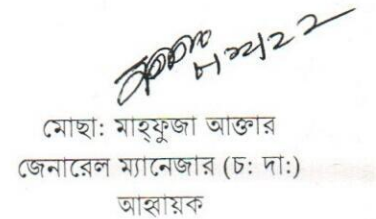 মোছা: মাহ্ফুজা আক্তার
জেনারেল ম্যানেজার (চ: দা:)
আহ্বায়ক